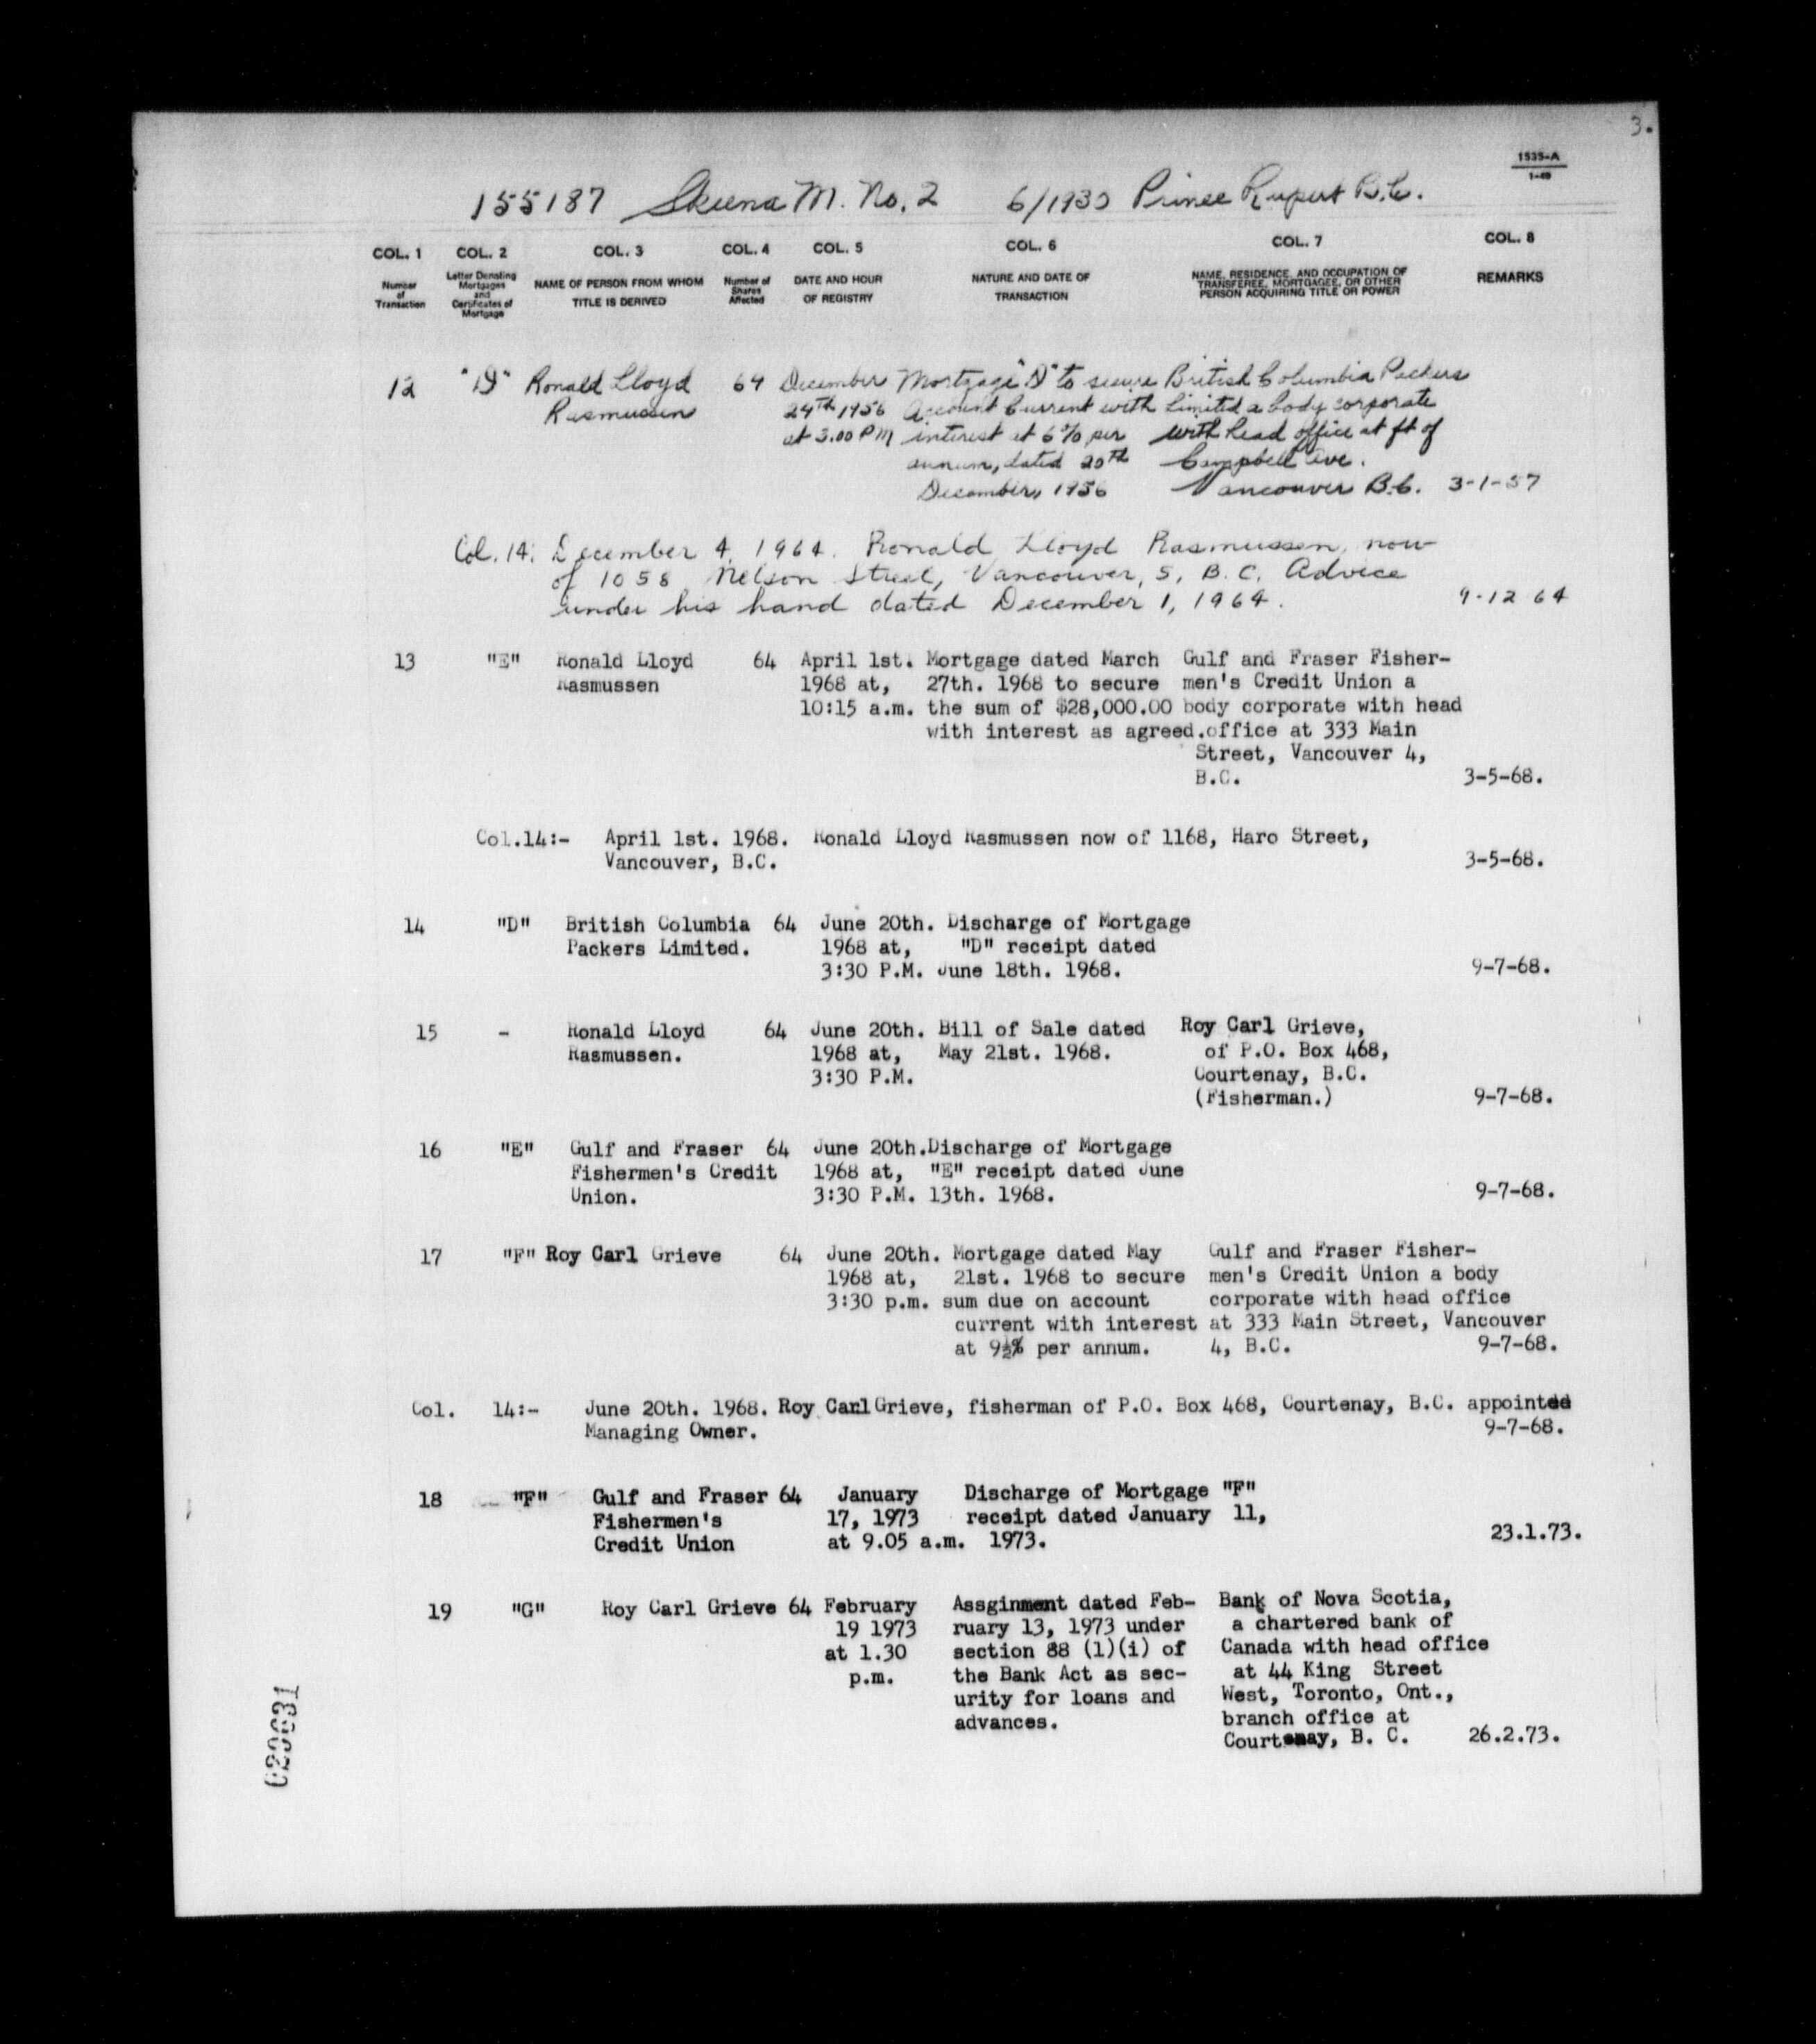 3.
1535-A
1-49
155187 Skeena M. No. 2 6/1930 Prince Rupert B.C.
COL. 1 COL. 2 COL. 3 COL. 4 COL. 5 COL. 6 COL. 7 COL. 8
Number of Transaction
Letter Denoting Mortgages and Certificates of Mortgage
NAME OF PERSON FROM WHOM TITLE IS DERIVED
Number of Shares Affected
DATE AND HOUR OF REGISTRY
NATURE AND DATE OF TRANSACTION
NAME, RESIDENCE, AND OCCUPATION OF TRANSFEREE, MORTGAGEE, OR OTHER PERSON ACQUIRING TITLE OR POWER
REMARKS
12 "D" Ronald Lloyd 64 December Mortgage "D" to secure British Columbia Packers
Rasmussen 24th 1956 Account Current with Limited a body corporate
at 3.00 PM interest at 6% per with head office at ft of
annum, dated 20th Campbell Ave.
December, 1956 Vancouver B.C. 3-1-57
Col. 14: December 4, 1964. Ronald Lloyd Rasmussen, now
of 1058 Nelson Street, Vancouver, 5, B.C. Advice
under his hand dated December 1, 1964. 9-12 64
13 "E" Ronald Lloyd 64 April 1st. Mortgage dated March Gulf and Fraser Fisher-
Rasmussen 1968 at, 27th. 1968 to secure men's Credit Union a
10:15 a.m. the sum of $28,000.00 body corporate with head
with interest as agreed. office at 333 Main
Street, Vancouver 4,
B.C. 3-5-68.
Col.14:- April 1st. 1968. Ronald Lloyd Rasmussen now of 1168, Haro Street,
Vancouver, B.C. 3-5-68.
14 "D" British Columbia 64 June 20th. Discharge of Mortgage
Packers Limited. 1968 at, "D" receipt dated
3:30 P.M. June 18th. 1968. 9-7-68.
15 - Ronald Lloyd 64 June 20th. Bill of Sale dated Roy Carl Grieve,
Rasmussen. 1968 at, May 21st. 1968. of P.O. Box 468,
3:30 P.M. Courtenay, B.C.
(Fisherman.) 9-7-68.
16 "E" Gulf and Fraser 64 June 20th. Discharge of Mortgage
Fishermen's Credit 1968 at, "E" receipt dated June
Union. 3:30 P.M. 13th. 1968. 9-7-68.
17 "F" Roy Carl Grieve 64 June 20th. Mortgage dated May Gulf and Fraser Fisher-
1968 at, 21st. 1968 to secure men's Credit Union a body
3:30 p.m. sum due on account corporate with head office
current with interest at 333 Main Street, Vancouver
at 9½% per annum. 4, B.C. 9-7-68.
Col. 14:- June 20th. 1968. Roy Carl Grieve, fisherman of P.O. Box 468, Courtenay, B.C. appointed
Managing Owner. 9-7-68.
18 "F" Gulf and Fraser 64 January Discharge of Mortgage "F"
Fishermen's 17, 1973 receipt dated January 11,
Credit Union at 9.05 a.m. 1973. 23.1.73.
19 "G" Roy Carl Grieve 64 February Assginment dated Feb- Bank of Nova Scotia,
19 1973 ruary 13, 1973 under a chartered bank of
at 1.30 section 88 (1)(i) of Canada with head office
p.m. the Bank Act as sec- at 44 King Street
urity for loans and West, Toronto, Ont.,
advances. branch office at
Courtenay, B. C. 26.2.73.